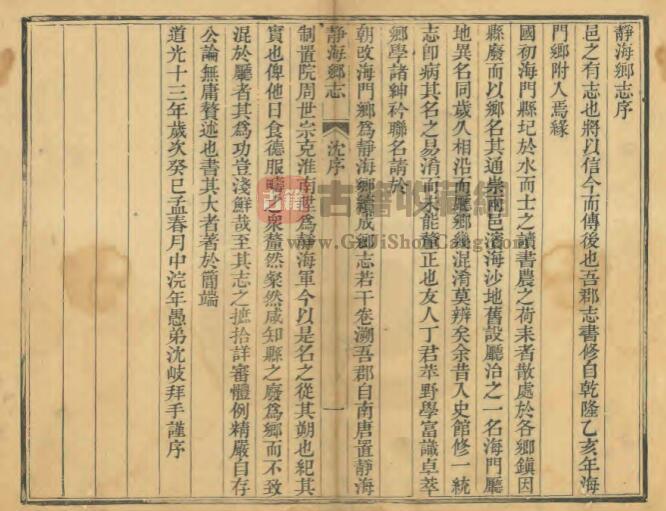 靜海鄉志序
邑之有志也將以信今而傳後也吾郡志書修自乾隆乙亥年海
門鄉附入焉緣
國初海門縣圮於水而士之讀書農之荷耒者散處於各鄉鎮因
縣廢而以鄉名其通崇兩邑濱海沙地舊設廳治之一名海門廳
地異名同歲久相沿而廳鄉幾混淆莫辨矣余昔入史館修一統
志卽病其名之易淆而未能釐正也友人丁君莘野學富識卓萃
鄉學諸紳衿聯名請於
朝改海門鄉爲靜海鄉續成鄉志若干卷溯吾郡自南唐置靜海
靜海鄉志
沈序
一
制置院周世宗克淮南陞爲靜海軍今以是名之從其朔也紀其
實也俾他日食德服疇之衆釐然粲然咸知縣之廢爲鄉而不致
混於廳者其爲功豈淺鮮哉至其志之摭拾詳審體例精嚴自存
公論無庸贅述也書其大者著於簡端
道光十三年歲次癸巳孟春月中浣年愚弟沈岐拜手謹序
古籍
古籍收藏網
www.GuJiShouCang.com